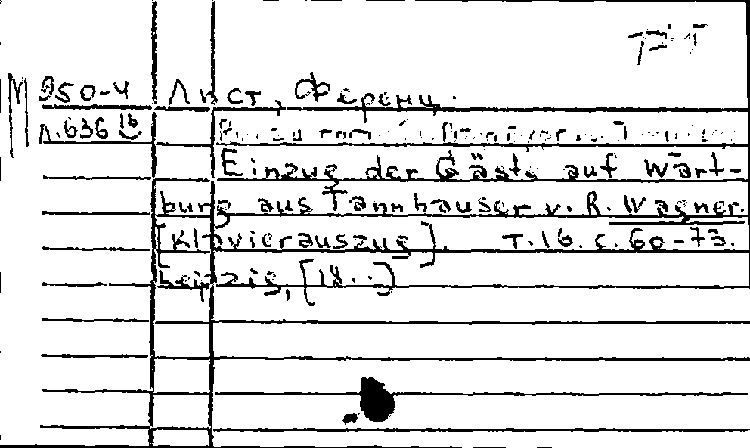 М 950-4 Лист, Ференц.
Л.636 16
Einzug der Gäste auf Wart-
burg aus Tannhäuser v. R. Wagner.
[Klavierauszug]. Т.16. с. 60-73.
Leipzig, [18..]